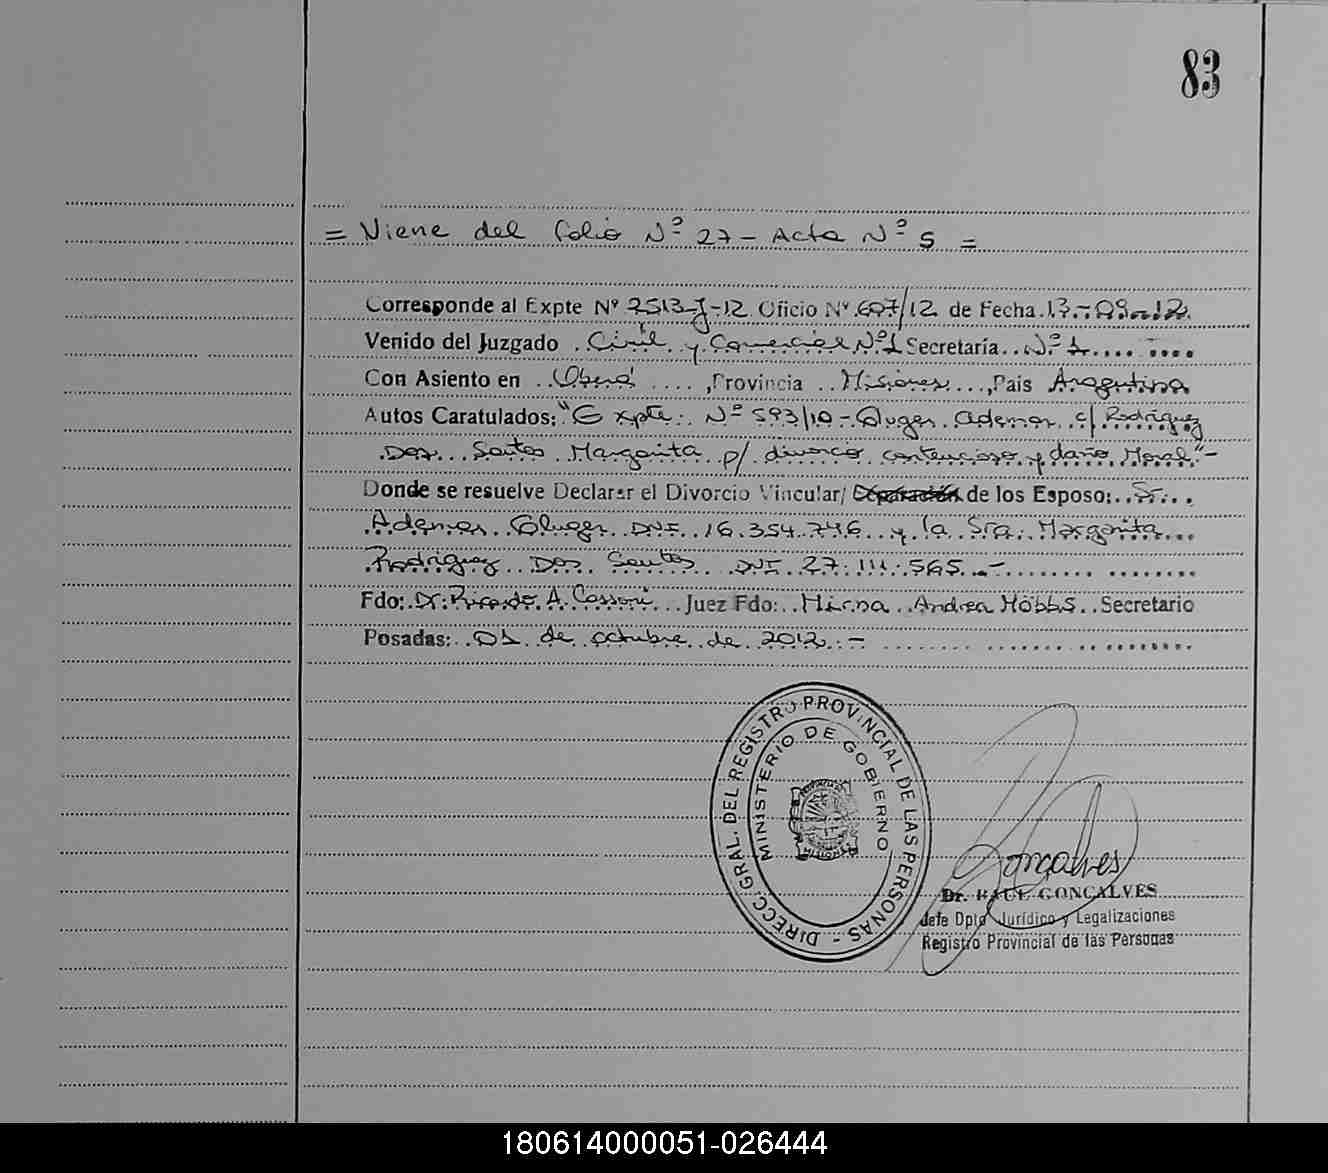 83
= Viene del folio Nº 27 - Acta Nº 5 =
Corresponde al Expte Nº 2513-J-12 Oficio Nº 607/12 de Fecha 13-09-12
Venido del Juzgado Civil y Comercial Nº 1 Secretaría Nº 1
Con Asiento en Oberá, Provincia Misiones, Pais Argentina
Autos Caratulados: "Expte. Nº 593/10 - Gluger Ademar c/ Rodríguez
Dos Santos Margarita p/ divorcio contencioso y daño Moral" -
Donde se resuelve Declarar el Divorcio Vincular/ Separación de los Esposo: Sr.
Ademar Gluger DNI 16.354.746 y la Sra. Margarita
Rodriguez Dos Santos DNI 27.111.565.-
Fdo: Dr. Ricardo A. Cassoni Juez Fdo: Mirna Andrea Höbbs Secretario
Posadas: 01 de octubre de 2012.-
DIRECC. GRAL. DEL REGISTRO PROVINCIAL DE LAS PERSONAS -
MINISTERIO DE GOBIERNO
MISIONES
Gonçalves
Dr. RAUL GONCALVES
Jefe Dpto Jurídico y Legalizaciones
Registro Provincial de las Personas
180614000051-026444